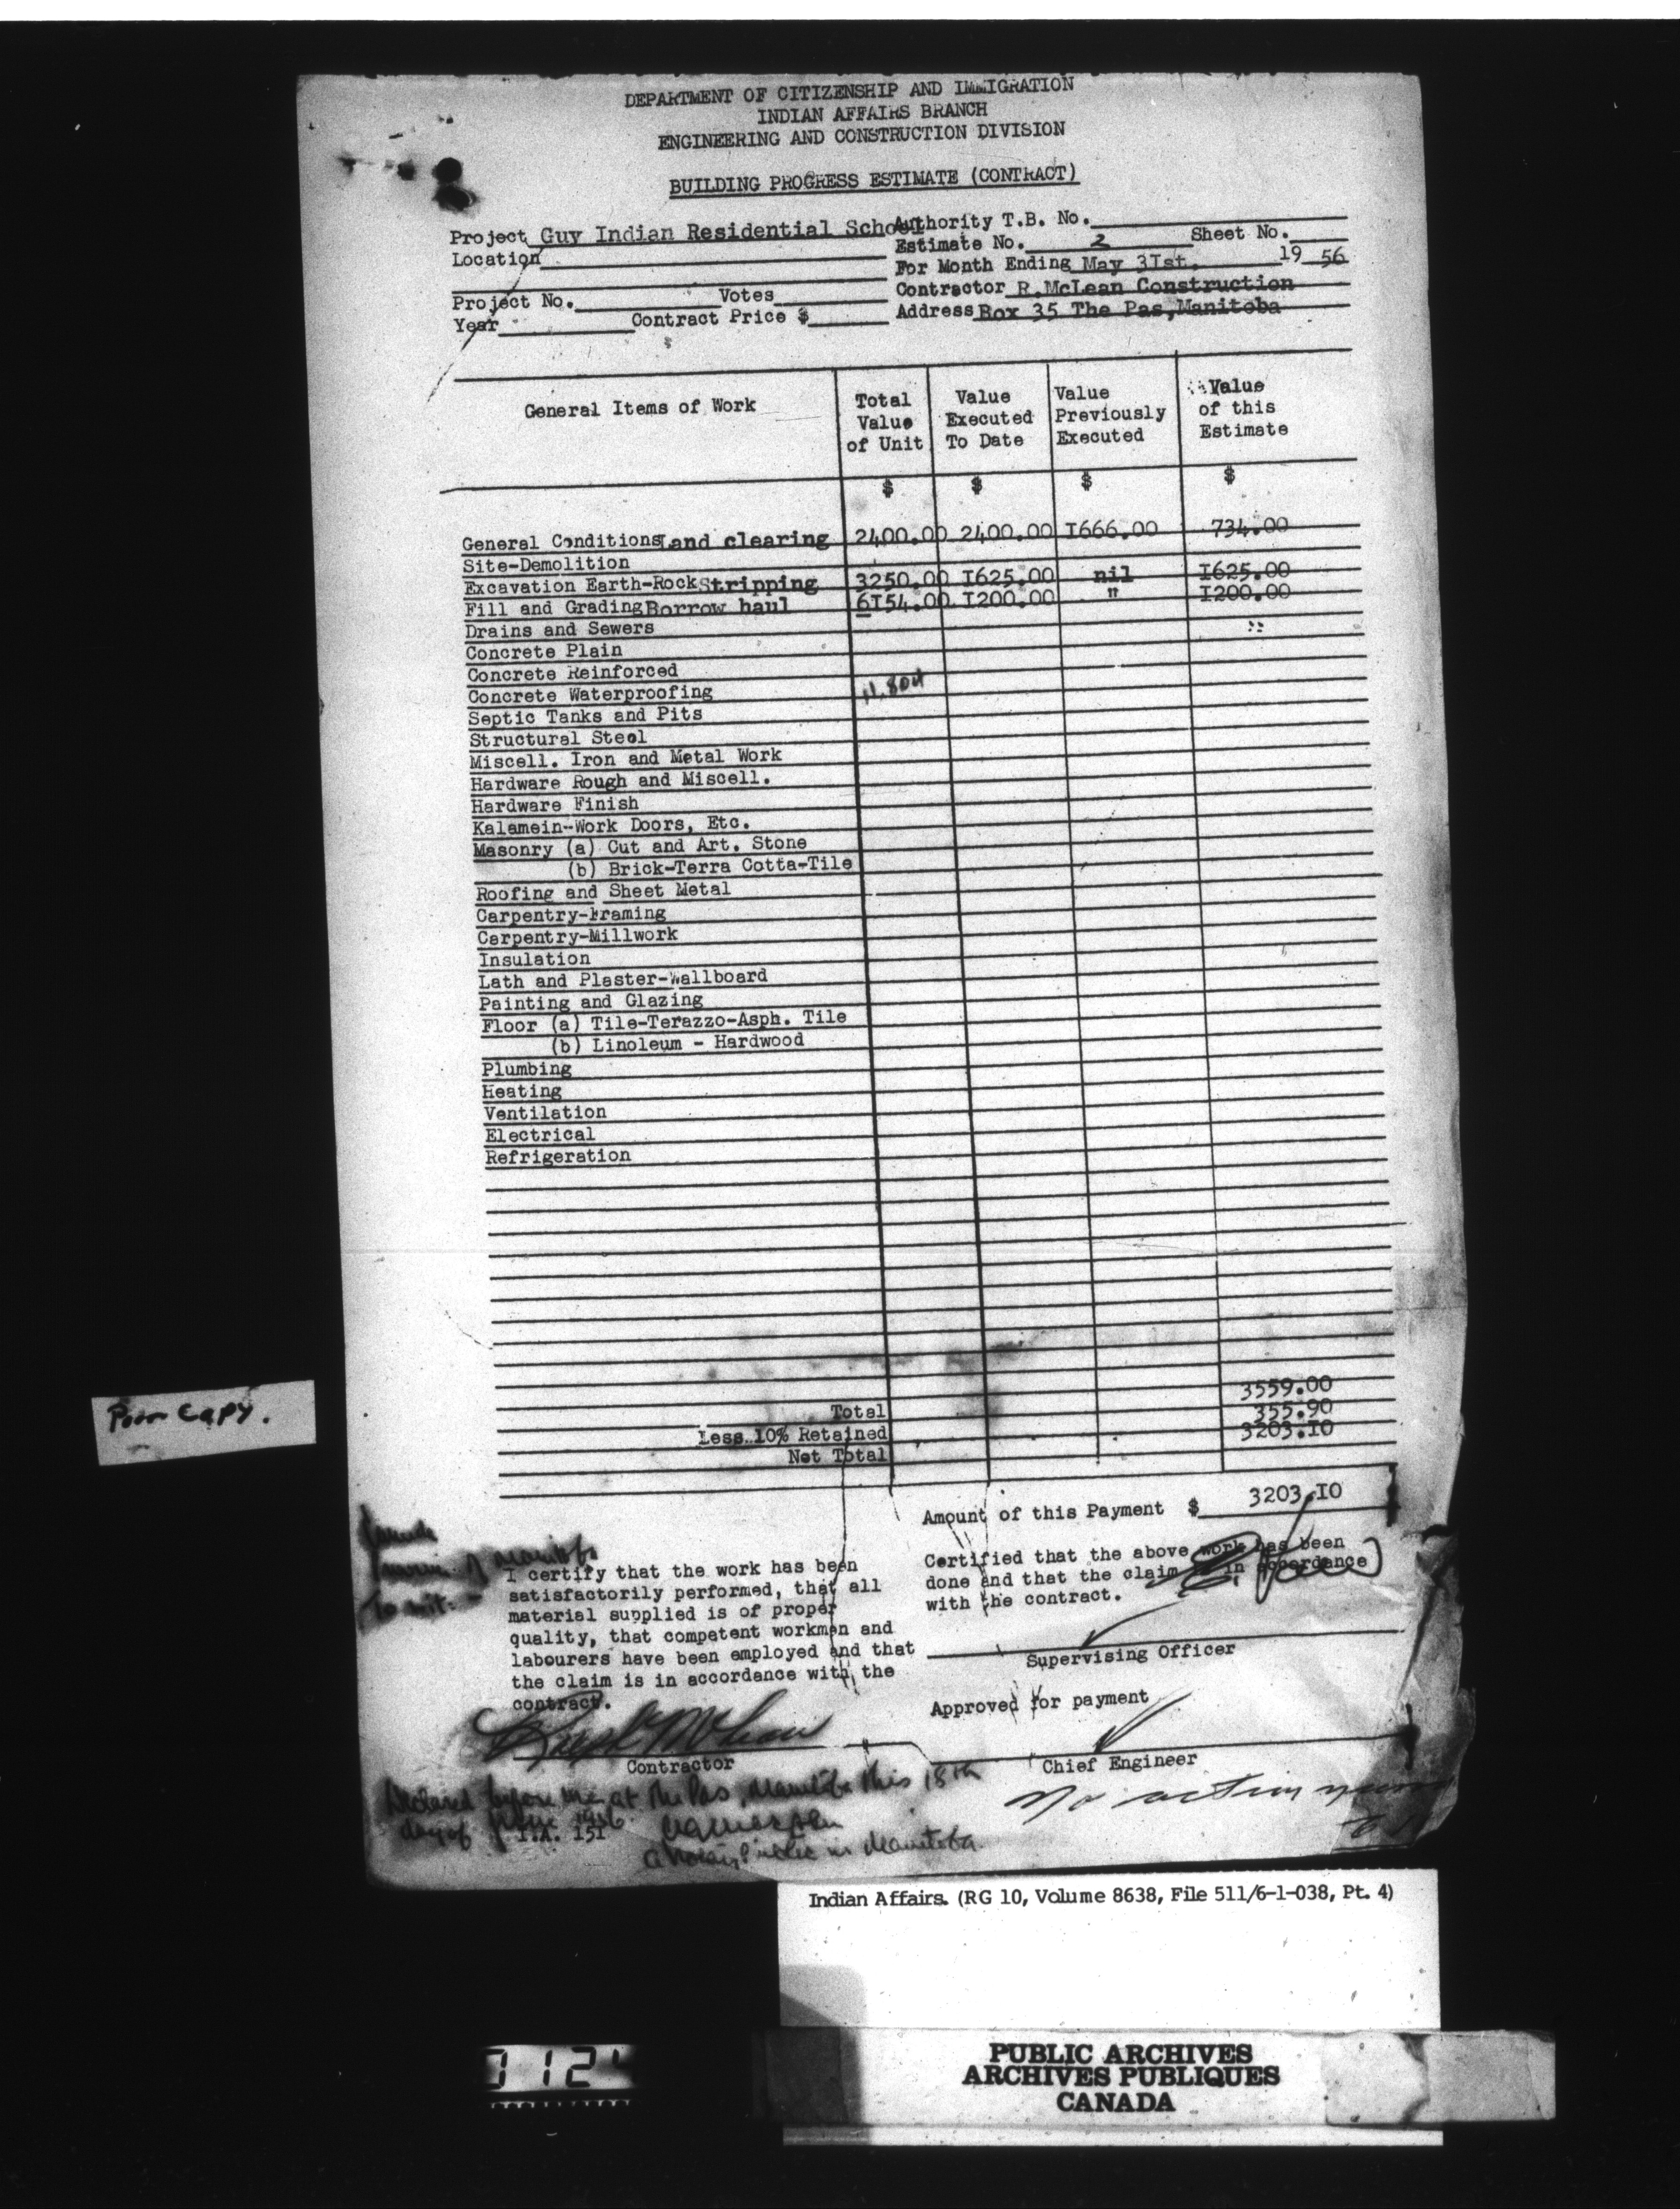 DEPARTMENT OF CITIZENSHIP AND IMMIGRATION
INDIAN AFFAIRS BRANCH
ENGINEERING AND CONSTRUCTION DIVISION
BUILDING PROGRESS ESTIMATE (CONTRACT)
Project Guy Indian Residential School Authority T.B. No.
Location Estimate No. 2 Sheet No.
For Month Ending May 3Ist. 19 56
Project No. Votes Contractor R.McLean Construction
Year Contract Price $ Address Box 35 The Pas,Manitoba
General Items of Work Total Value of Unit Value Executed To Date Value Previously Executed Value of this Estimate
$ $ $ $
General Conditions Land clearing 2400.00 2400.00 I666.00 734.00
Site-Demolition
Excavation Earth-Rock Stripping 3250.00 I625.00 nil I625.00
Fill and Grading Borrow haul 6I54.00 I200.00 " I200.00
Drains and Sewers
Concrete Plain
Concrete Reinforced
Concrete Waterproofing 11,804
Septic Tanks and Pits
Structural Steel
Miscell. Iron and Metal Work
Hardware Rough and Miscell.
Hardware Finish
Kalamein-Work Doors, Etc.
Masonry (a) Cut and Art. Stone
(b) Brick-Terra Cotta-Tile
Roofing and Sheet Metal
Carpentry-Framing
Carpentry-Millwork
Insulation
Lath and Plaster-Wallboard
Painting and Glazing
Floor (a) Tile-Terazzo-Asph. Tile
(b) Linoleum - Hardwood
Plumbing
Heating
Ventilation
Electrical
Refrigeration
3559.00
Total 355.90
Less 10% Retained 3203.I0
Net Total
Poor Copy.
Amount of this Payment $ 3203.I0
Manitoba
To wit:
I certify that the work has been
satisfactorily performed, that all
material supplied is of proper
quality, that competent workmen and
labourers have been employed and that
the claim is in accordance with the
contract.
Contractor
Certified that the above work has been
done and that the claim in accordance
with the contract.
Supervising Officer
Approved for payment
Chief Engineer
Declared before me at The Pas, Manitoba this 18th
day of June 1956
I.A. 151
A Notary Public in Manitoba
No action
Indian Affairs. (RG 10, Volume 8638, File 511/6-1-038, Pt. 4)
PUBLIC ARCHIVES
ARCHIVES PUBLIQUES
CANADA